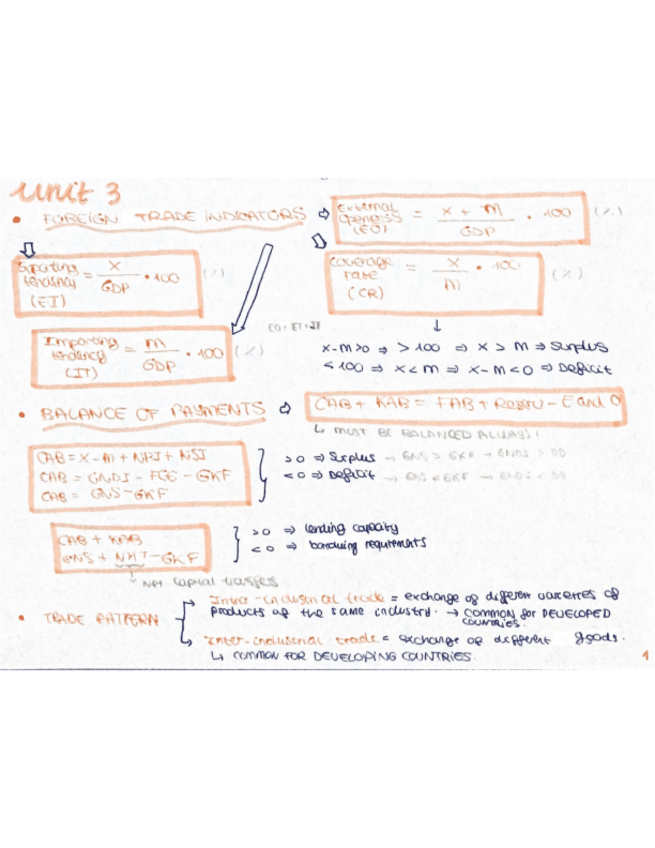 Unit 3
• FOREIGN TRADE INDICATORS ⇨ External Openess (EO) = X + M / GDP • 100 (%)
Exporting tendency (ET) = X / GDP • 100 (%)
Coverage rate (CR) = X / M • 100 (%)
Importing tendency (IT) = M / GDP • 100 (%)
EO = ET + IT
X-M>0 ⇒ > 100 ⇒ X > M ⇒ Surplus
≤ 100 ⇒ X < M ⇒ X - M < 0 ⇒ Deficit
• BALANCE OF PAYMENTS ⇨ CAB + KAB = FAB + - E and O
↳ MUST BE BALANCED ALWAYS!
CAB = X - M + NPI + NSI
CAB = GNDI - FCE - GKF
CAB = GNS - GKF
> 0 ⇒ Surplus → GNS > GKF → GNDI > DD
< 0 ⇒ Deficit → GNS < GKF → GNDI < DD
CAB + KAB
GNS + NKT - GKF
> 0 ⇒ lending capacity
< 0 ⇒ borrowing requirments
→ Net Capital
• TRADE PATTERN
→ Intra-industrial trade = exchange of different varieties of
products of the same industry. → COMMON for DEVELOPED
COUNTRIES.
→ Inter-industrial trade = exchange of different goods.
↳ COMMON FOR DEVELOPING COUNTRIES.
1